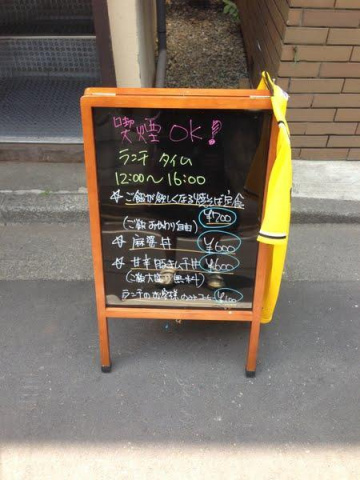 喫煙 OK!
ランチ タイム
12:00〜16:00
☆ご飯が欲しくなる焼そば定食
¥700
(ご飯おかわり自由)
☆ 麻婆丼 ¥600
☆ 甘辛豚キムチ丼 ¥600
(ご飯大盛り無料)
ランチのお客様 ホットコーヒー ¥100